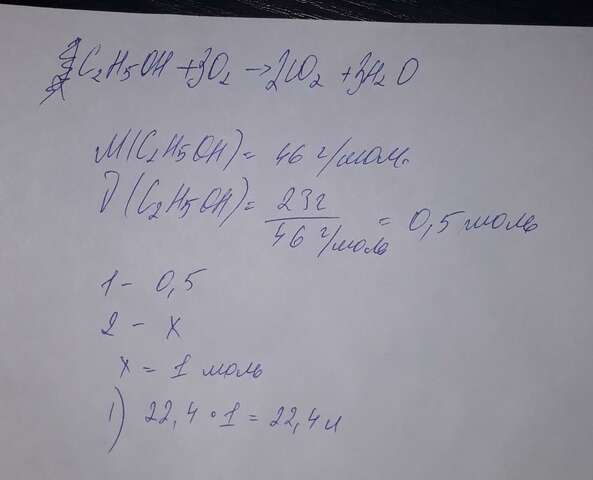 C₂H₅OH + 3O₂ → 2CO₂ + 3H₂O
M(C₂H₅OH) = 46 г/моль
ν(C₂H₅OH) = 23г / 46 г/моль = 0,5 моль
1 - 0,5
2 - x
x = 1 моль
1) 22,4 · 1 = 22,4 л